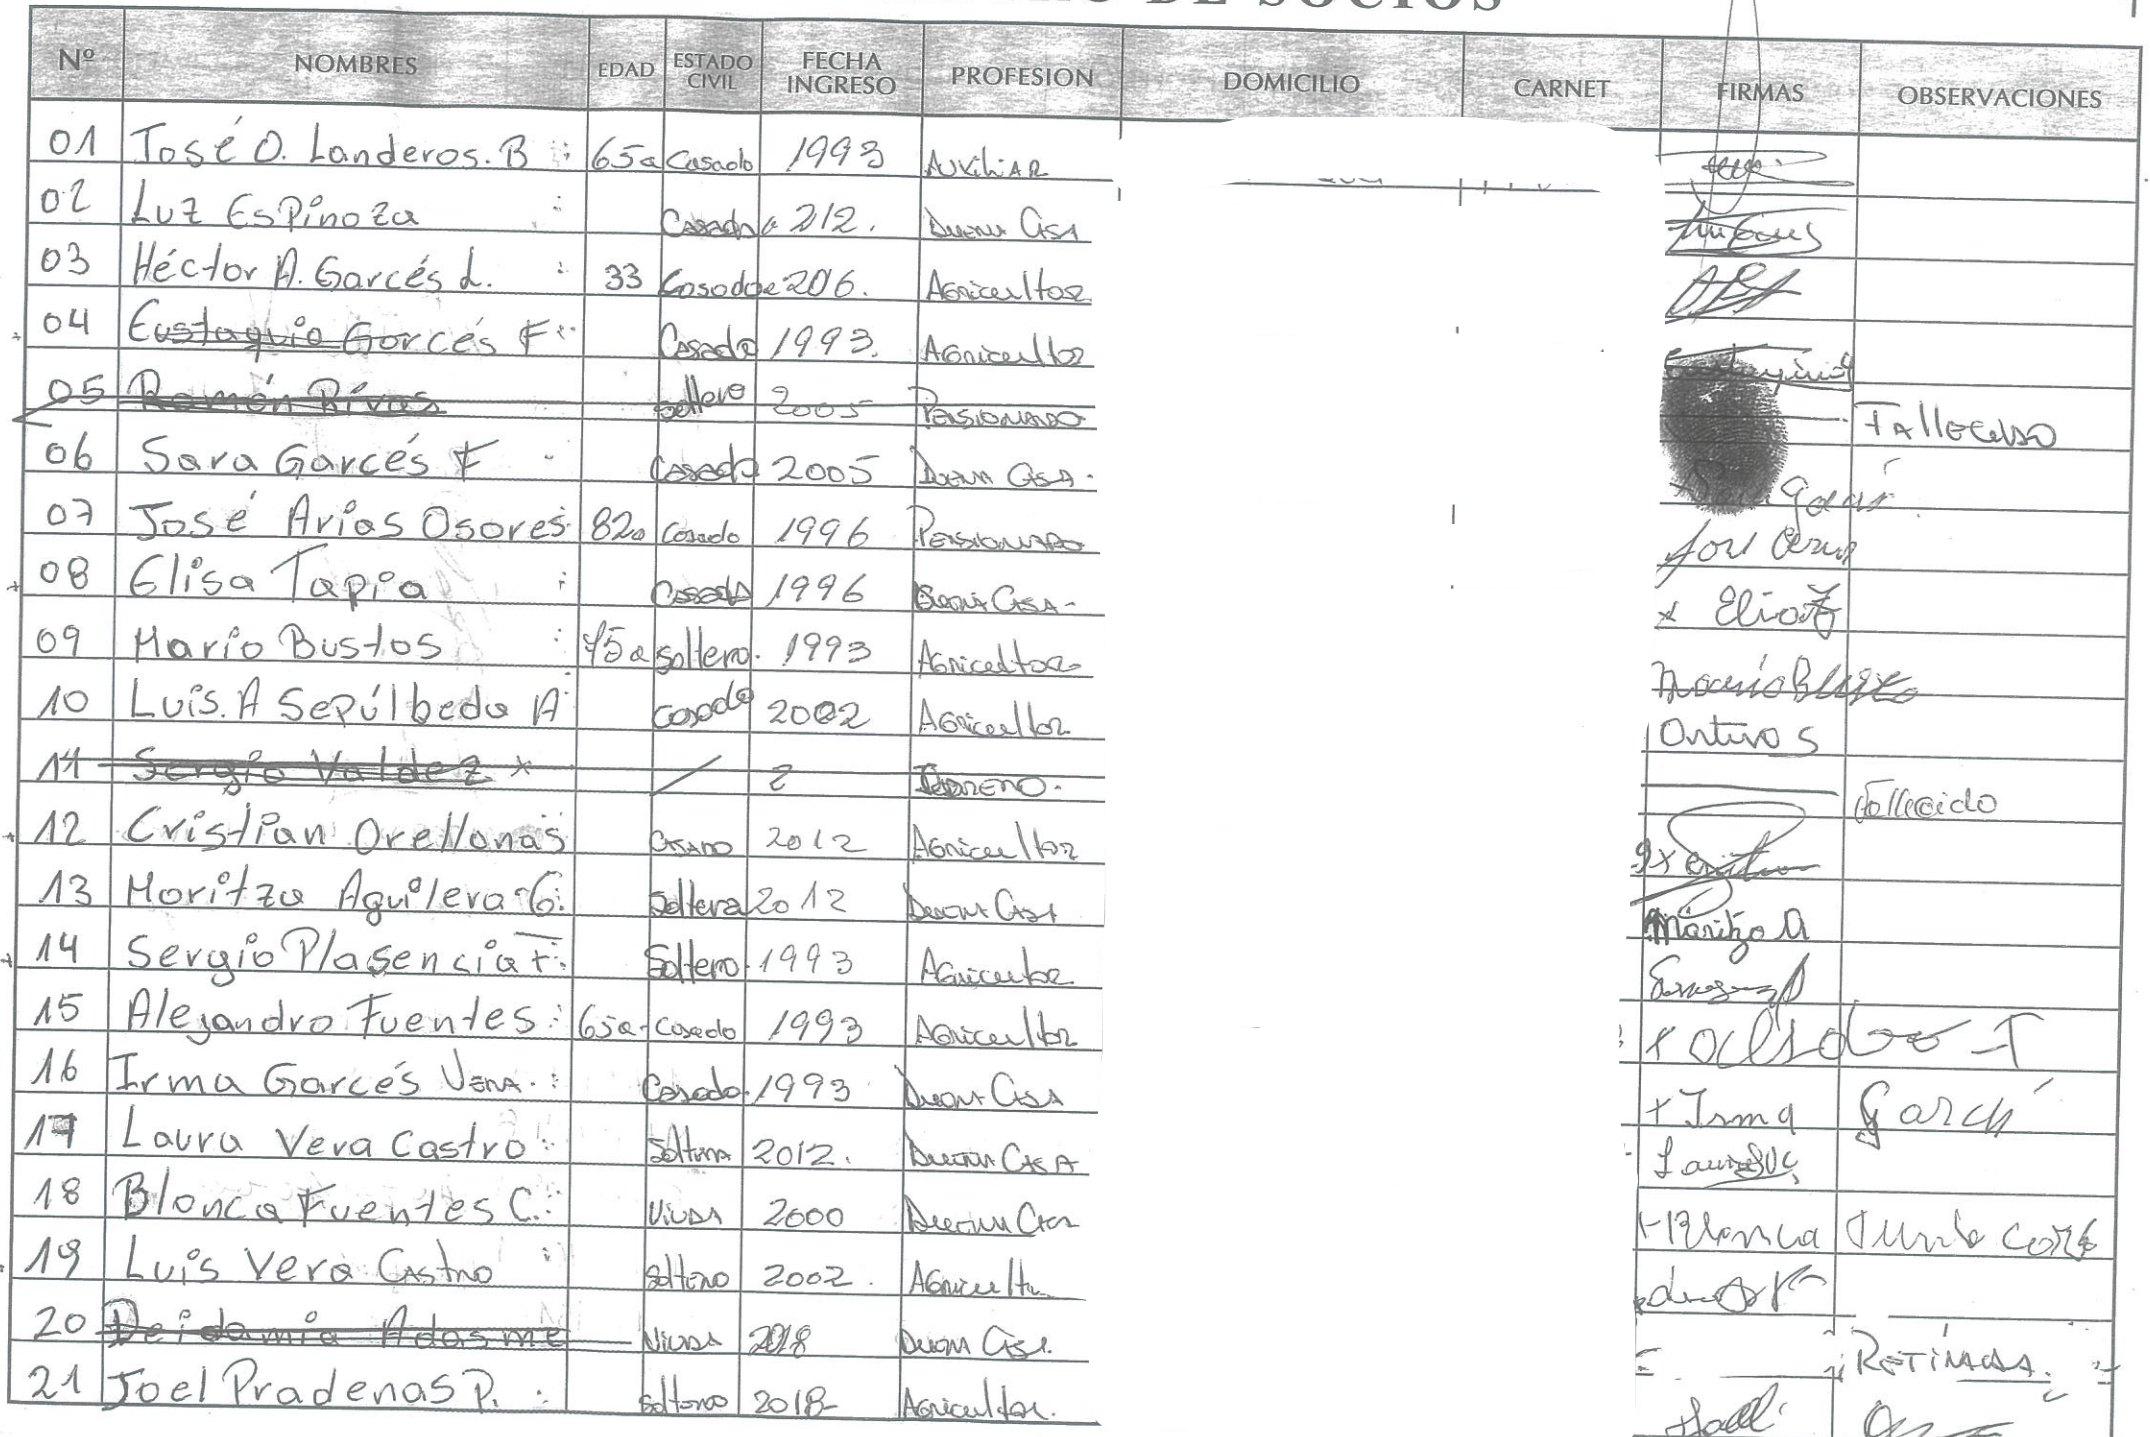 DE SOCIOS
Nº NOMBRES EDAD ESTADO CIVIL FECHA INGRESO PROFESION DOMICILIO CARNET FIRMAS OBSERVACIONES
01 José O. Landeros. B 65a Casado 1993 Auxiliar
02 Luz Espinoza Casado 212. Duena Casa
03 Héctor A. Garcés L. 33 Casado 206. Agricultor
04 Eustaquio Garcés F Casado 1993. Agricultor
05 Ramón Rivas soltero 2005 Pensionado Fallecido
06 Sara Garcés F Casada 2005 Duena Casa
07 José Arias Osores 82a Casado 1996 Pensionado
08 Elisa Tapia Casada 1996 Duena Casa
09 Mario Bustos 75a soltero. 1993 Agricultor
10 Luis. A Sepúlbeda A Casado 2002 Agricultor Ontivos
11 Sergio Valdez x 2 Fallecido
12 Cristian Orellanas Casado 2012 Agricultor
13 Moritza Aguilera G. Soltera 2012 Duena Casa Maritza A
14 Sergio Plasencia F. Soltero 1993 Agricultor
15 Alejandro Fuentes 65a Casado 1993 Agricultor
16 Irma Garcés Vera. Casado. 1993 Duena Casa x Irma Garcé
17 Laura Vera Castro Soltera 2012. Duena Casa
18 Blanca Fuentes C. Viuda 2000 Duena Casa Blanca
19 Luis Vera Castro soltero 2002. Agricultor
20 Deidamia Adasme Viuda 2018 Duena Casa. Retirada.
21 Joel Pradenas P. soltero 2018 Agricultor.